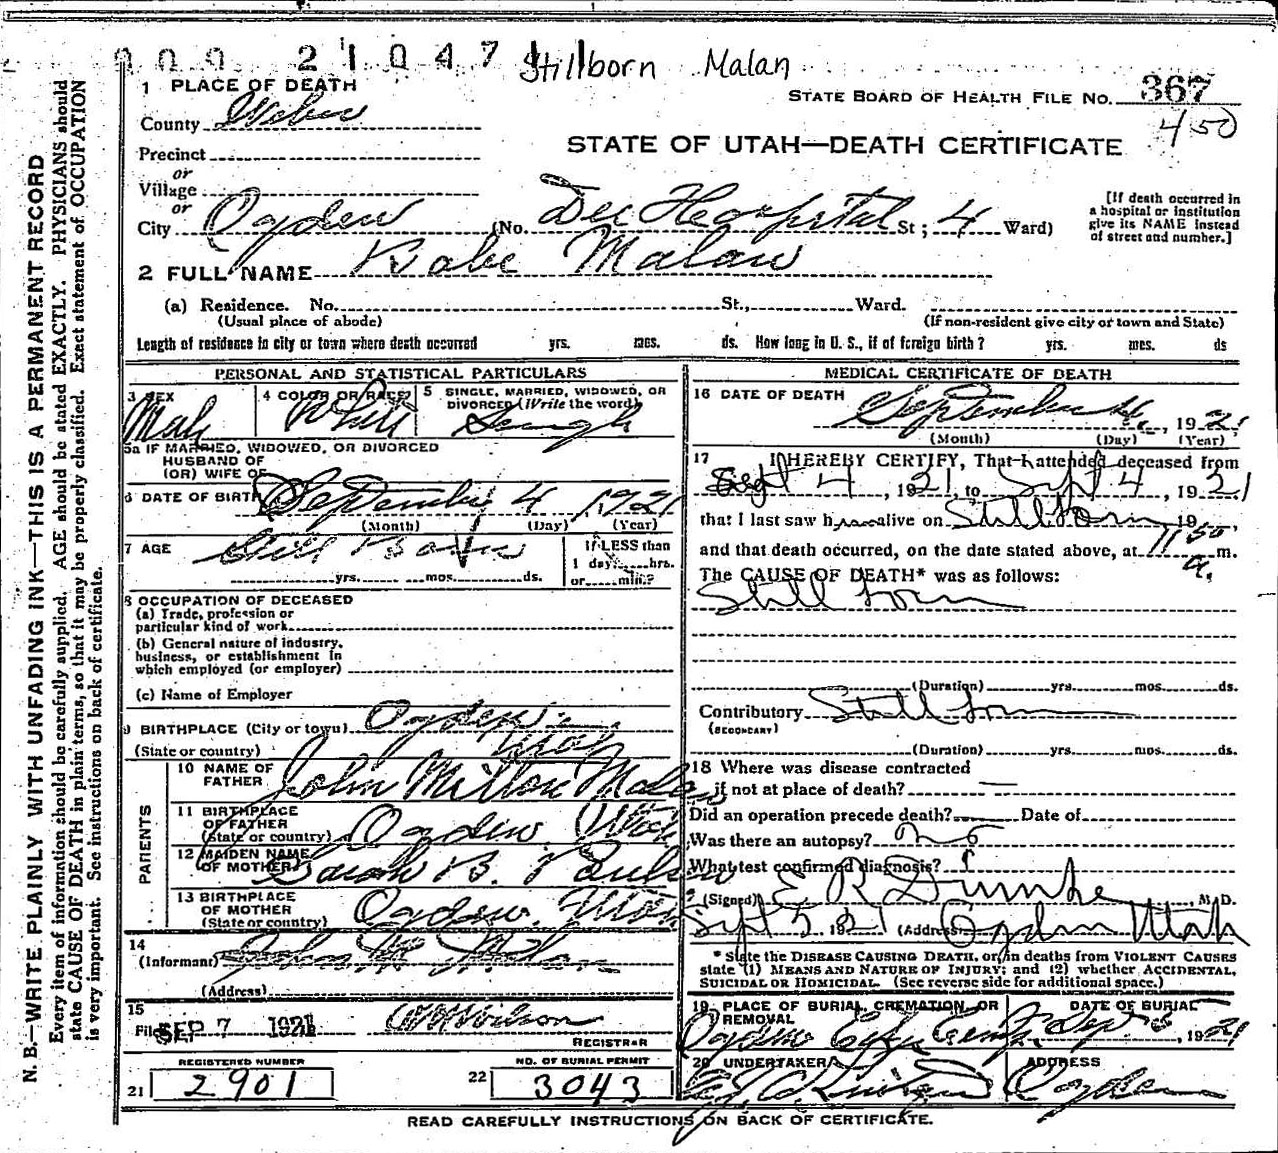 000 21047 Stillborn Malan
1 PLACE OF DEATH
STATE BOARD OF HEALTH FILE NO. 367
County Weber
450
STATE OF UTAH—DEATH CERTIFICATE
Precinct
or
Village
or
City Ogden (No. Dee Hospital St; 4 Ward)
[If death occurred in
a hospital or institution
give its NAME instead
of street and number.]
2 FULL NAME Babe Malan
(a) Residence. No. St., Ward.
(Usual place of abode) (If non-resident give city or town and State)
Length of residence in city or town where death occurred yrs. mos. ds. How long in U. S., if of foreign birth? yrs. mos. ds
PERSONAL AND STATISTICAL PARTICULARS
3 SEX 4 COLOR OR RACE 5 SINGLE, MARRIED, WIDOWED, OR
DIVORCED (Write the word)
Male White Single
5a IF MARRIED, WIDOWED, OR DIVORCED
HUSBAND OF
(OR) WIFE OF
6 DATE OF BIRTH September 4 1921
(Month) (Day) (Year)
7 AGE Still Born
If LESS than
1 day, hrs.
or min.?
yrs. mos. ds.
8 OCCUPATION OF DECEASED
(a) Trade, profession or
particular kind of work
(b) General nature of industry,
business, or establishment in
which employed (or employer)
(c) Name of Employer
9 BIRTHPLACE (City or town) Ogden
(State or country) Utah
PARENTS
10 NAME OF
FATHER John Milton Malan
11 BIRTHPLACE
OF FATHER
(State or country) Ogden Utah
12 MAIDEN NAME
OF MOTHER Sarah B.
13 BIRTHPLACE
OF MOTHER
(State or country) Ogden Utah
14
(Informant) John M Malan
(Address)
15
Filed SEP 7 1921 Wilson
REGISTRAR
REGISTERED NUMBER NO. OF BURIAL PERMIT
21 2901 22 3043
MEDICAL CERTIFICATE OF DEATH
16 DATE OF DEATH September 4, 1921
(Month) (Day) (Year)
17 I HEREBY CERTIFY, That I attended deceased from
Sept 4, 1921 to Sept 4, 1921
that I last saw h alive on Stillborn 19
and that death occurred, on the date stated above, at 11 50 a. m.
The CAUSE OF DEATH* was as follows:
Still born
(Duration) yrs. mos. ds.
Contributory Still born
(SECONDARY)
(Duration) yrs. mos. ds.
18 Where was disease contracted
if not at place of death? —
Did an operation precede death? Date of
Was there an autopsy? no
What test confirmed diagnosis?
(Signed) E R Dumke, M. D.
Sept 5, 1921 (Address) Ogden Utah
* State the DISEASE CAUSING DEATH, or in deaths from VIOLENT CAUSES
state (1) MEANS AND NATURE OF INJURY; and (2) whether ACCIDENTAL,
SUICIDAL OR HOMICIDAL. (See reverse side for additional space.)
19 PLACE OF BURIAL, CREMATION, OR
REMOVAL
DATE OF BURIAL
Ogden City Cemty. Sep 1921
20 UNDERTAKER ADDRESS
Ogden
READ CAREFULLY INSTRUCTIONS ON BACK OF CERTIFICATE.
N. B.—WRITE PLAINLY WITH UNFADING INK—THIS IS A PERMANENT RECORD
Every item of information should be carefully supplied. AGE should be stated EXACTLY. PHYSICIANS should
state CAUSE OF DEATH in plain terms, so that it may be properly classified. Exact statement of OCCUPATION
is very important. See instructions on back of certificate.